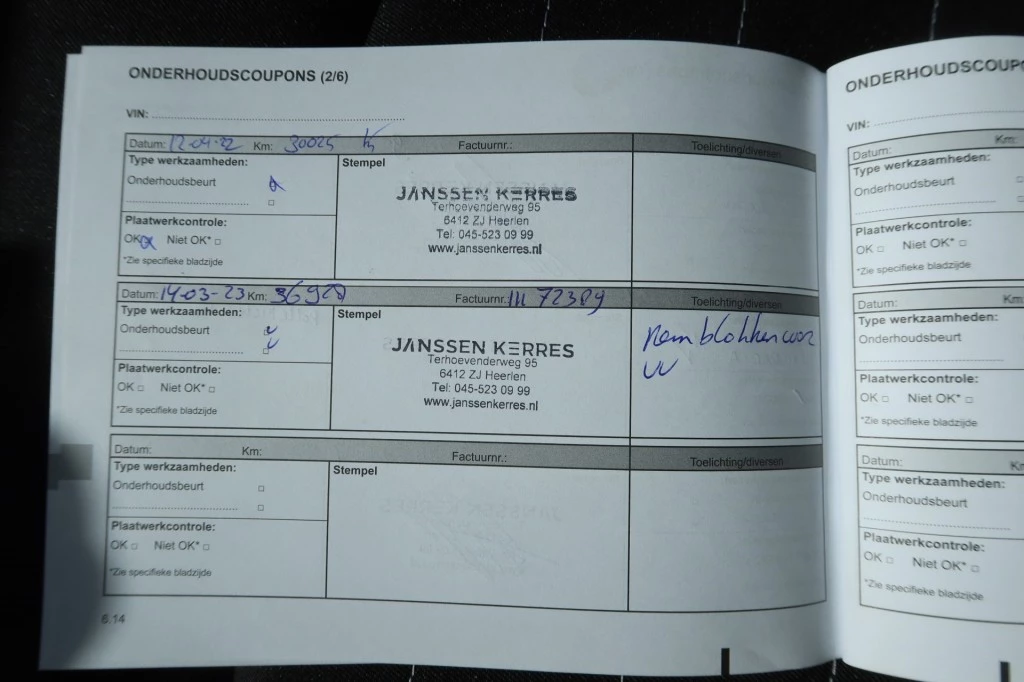 ONDERHOUDSCOUPONS (2/6)
VIN:
Datum: 12-04-22 Km: 30025 Factuurnr.: Toelichting/diversen
Type werkzaamheden:
Onderhoudsbeurt
Plaatwerkcontrole:
OK Niet OK*
*Zie specifieke bladzijde
Stempel
JANSSEN KERRES
Terhoevenderweg 95
6412 ZJ Heerlen
Tel: 045-523 09 99
www.janssenkerres.nl
Datum: 14-03-23 Km: 36928 Factuurnr. 72389 Toelichting/diversen
Type werkzaamheden:
Onderhoudsbeurt
Plaatwerkcontrole:
OK Niet OK*
*Zie specifieke bladzijde
Stempel
JANSSEN KERRES
Terhoevenderweg 95
6412 ZJ Heerlen
Tel: 045-523 09 99
www.janssenkerres.nl
remblokken voor
Datum: Km: Factuurnr.: Toelichting/diversen
Type werkzaamheden:
Onderhoudsbeurt
Plaatwerkcontrole:
OK Niet OK*
*Zie specifieke bladzijde
Stempel
6.14
ONDERHOUDSCOUP
VIN:
Datum: Km:
Type werkzaamheden:
Onderhoudsbeurt
Plaatwerkcontrole:
OK Niet OK*
*Zie specifieke bladzijde
Datum: Km
Type werkzaamheden:
Onderhoudsbeurt
Plaatwerkcontrole:
OK Niet OK*
*Zie specifieke bladzijde
Datum: K
Type werkzaamheden:
Onderhoudsbeurt
Plaatwerkcontrole:
OK Niet OK*
*Zie specifieke bladzijde